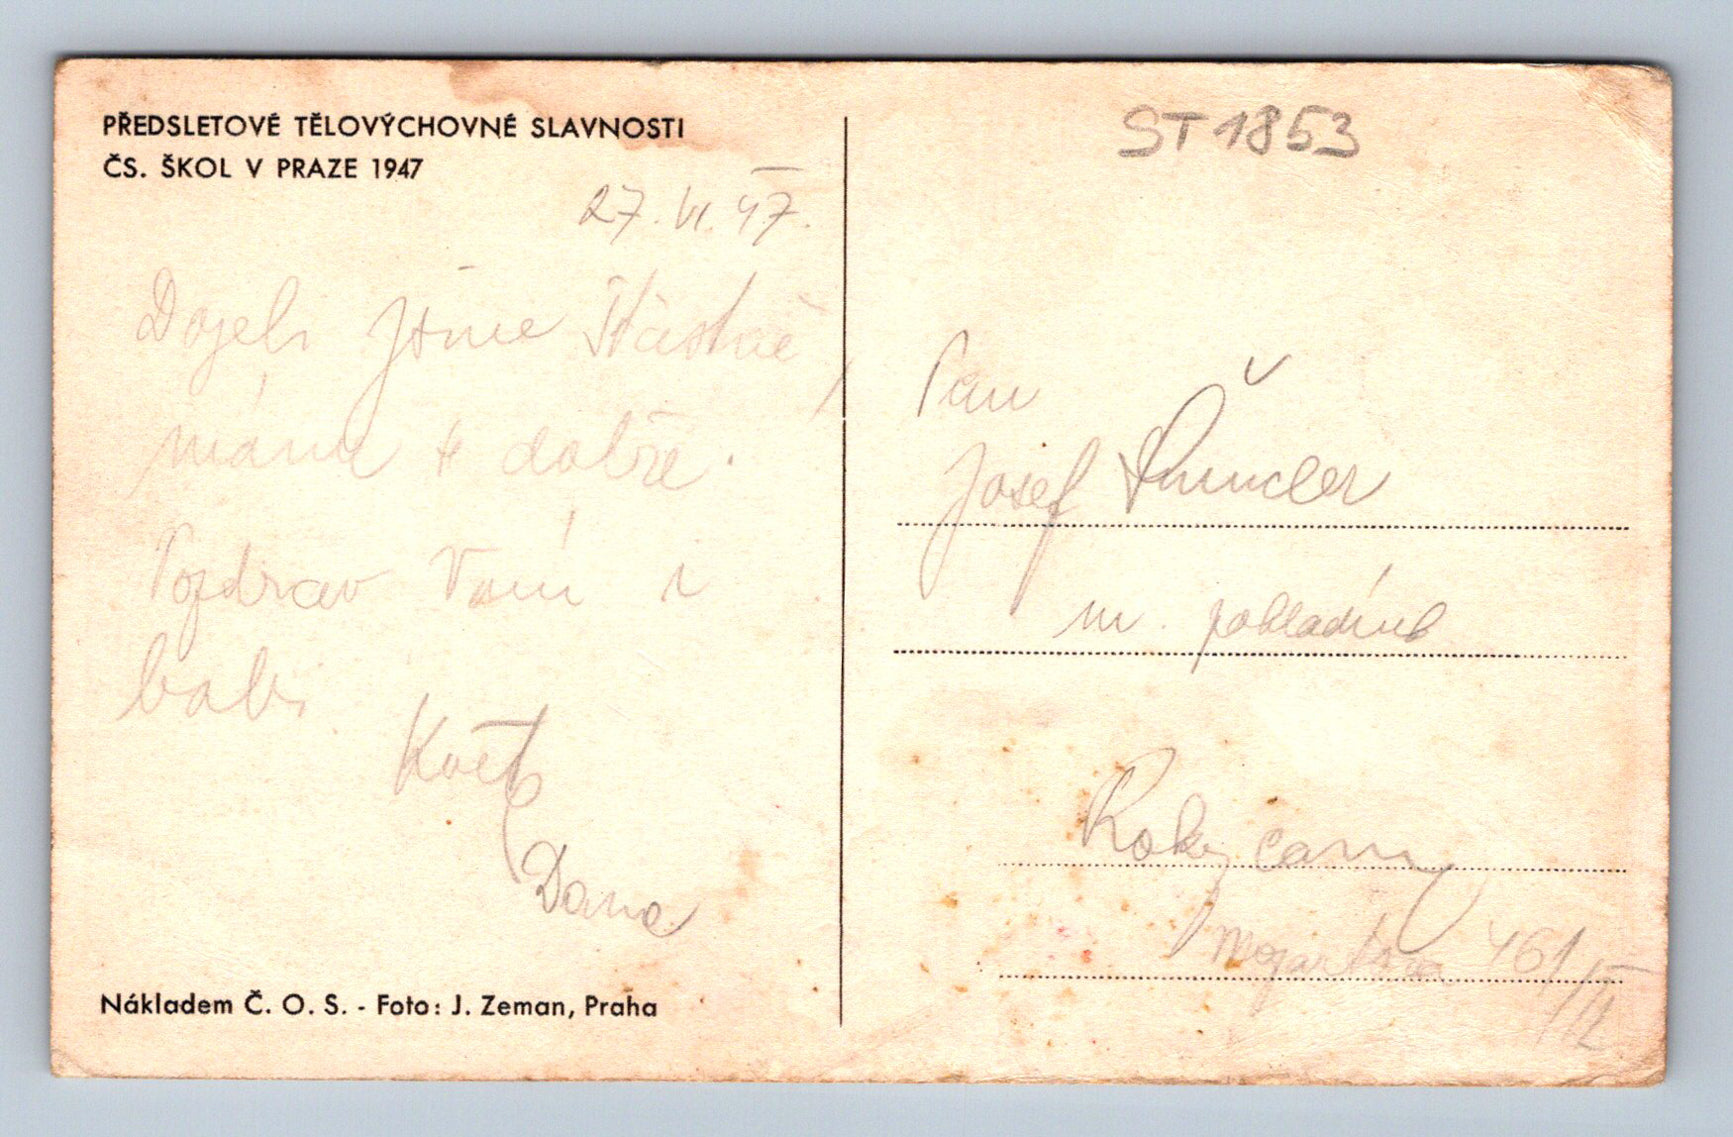 PŘEDSLETOVÉ TĚLOVÝCHOVNÉ SLAVNOSTI
ČS. ŠKOL V PRAZE 1947
27. VI. 47.
Dojeli jsme šťastně,
máme se dobře.
Pozdrav Vám i
babi
Květa
Dana
Nákladem Č. O. S. - Foto: J. Zeman, Praha
ST 1853
Pan
Josef
m. pokladník
Rokycany
Mozartova 461/II